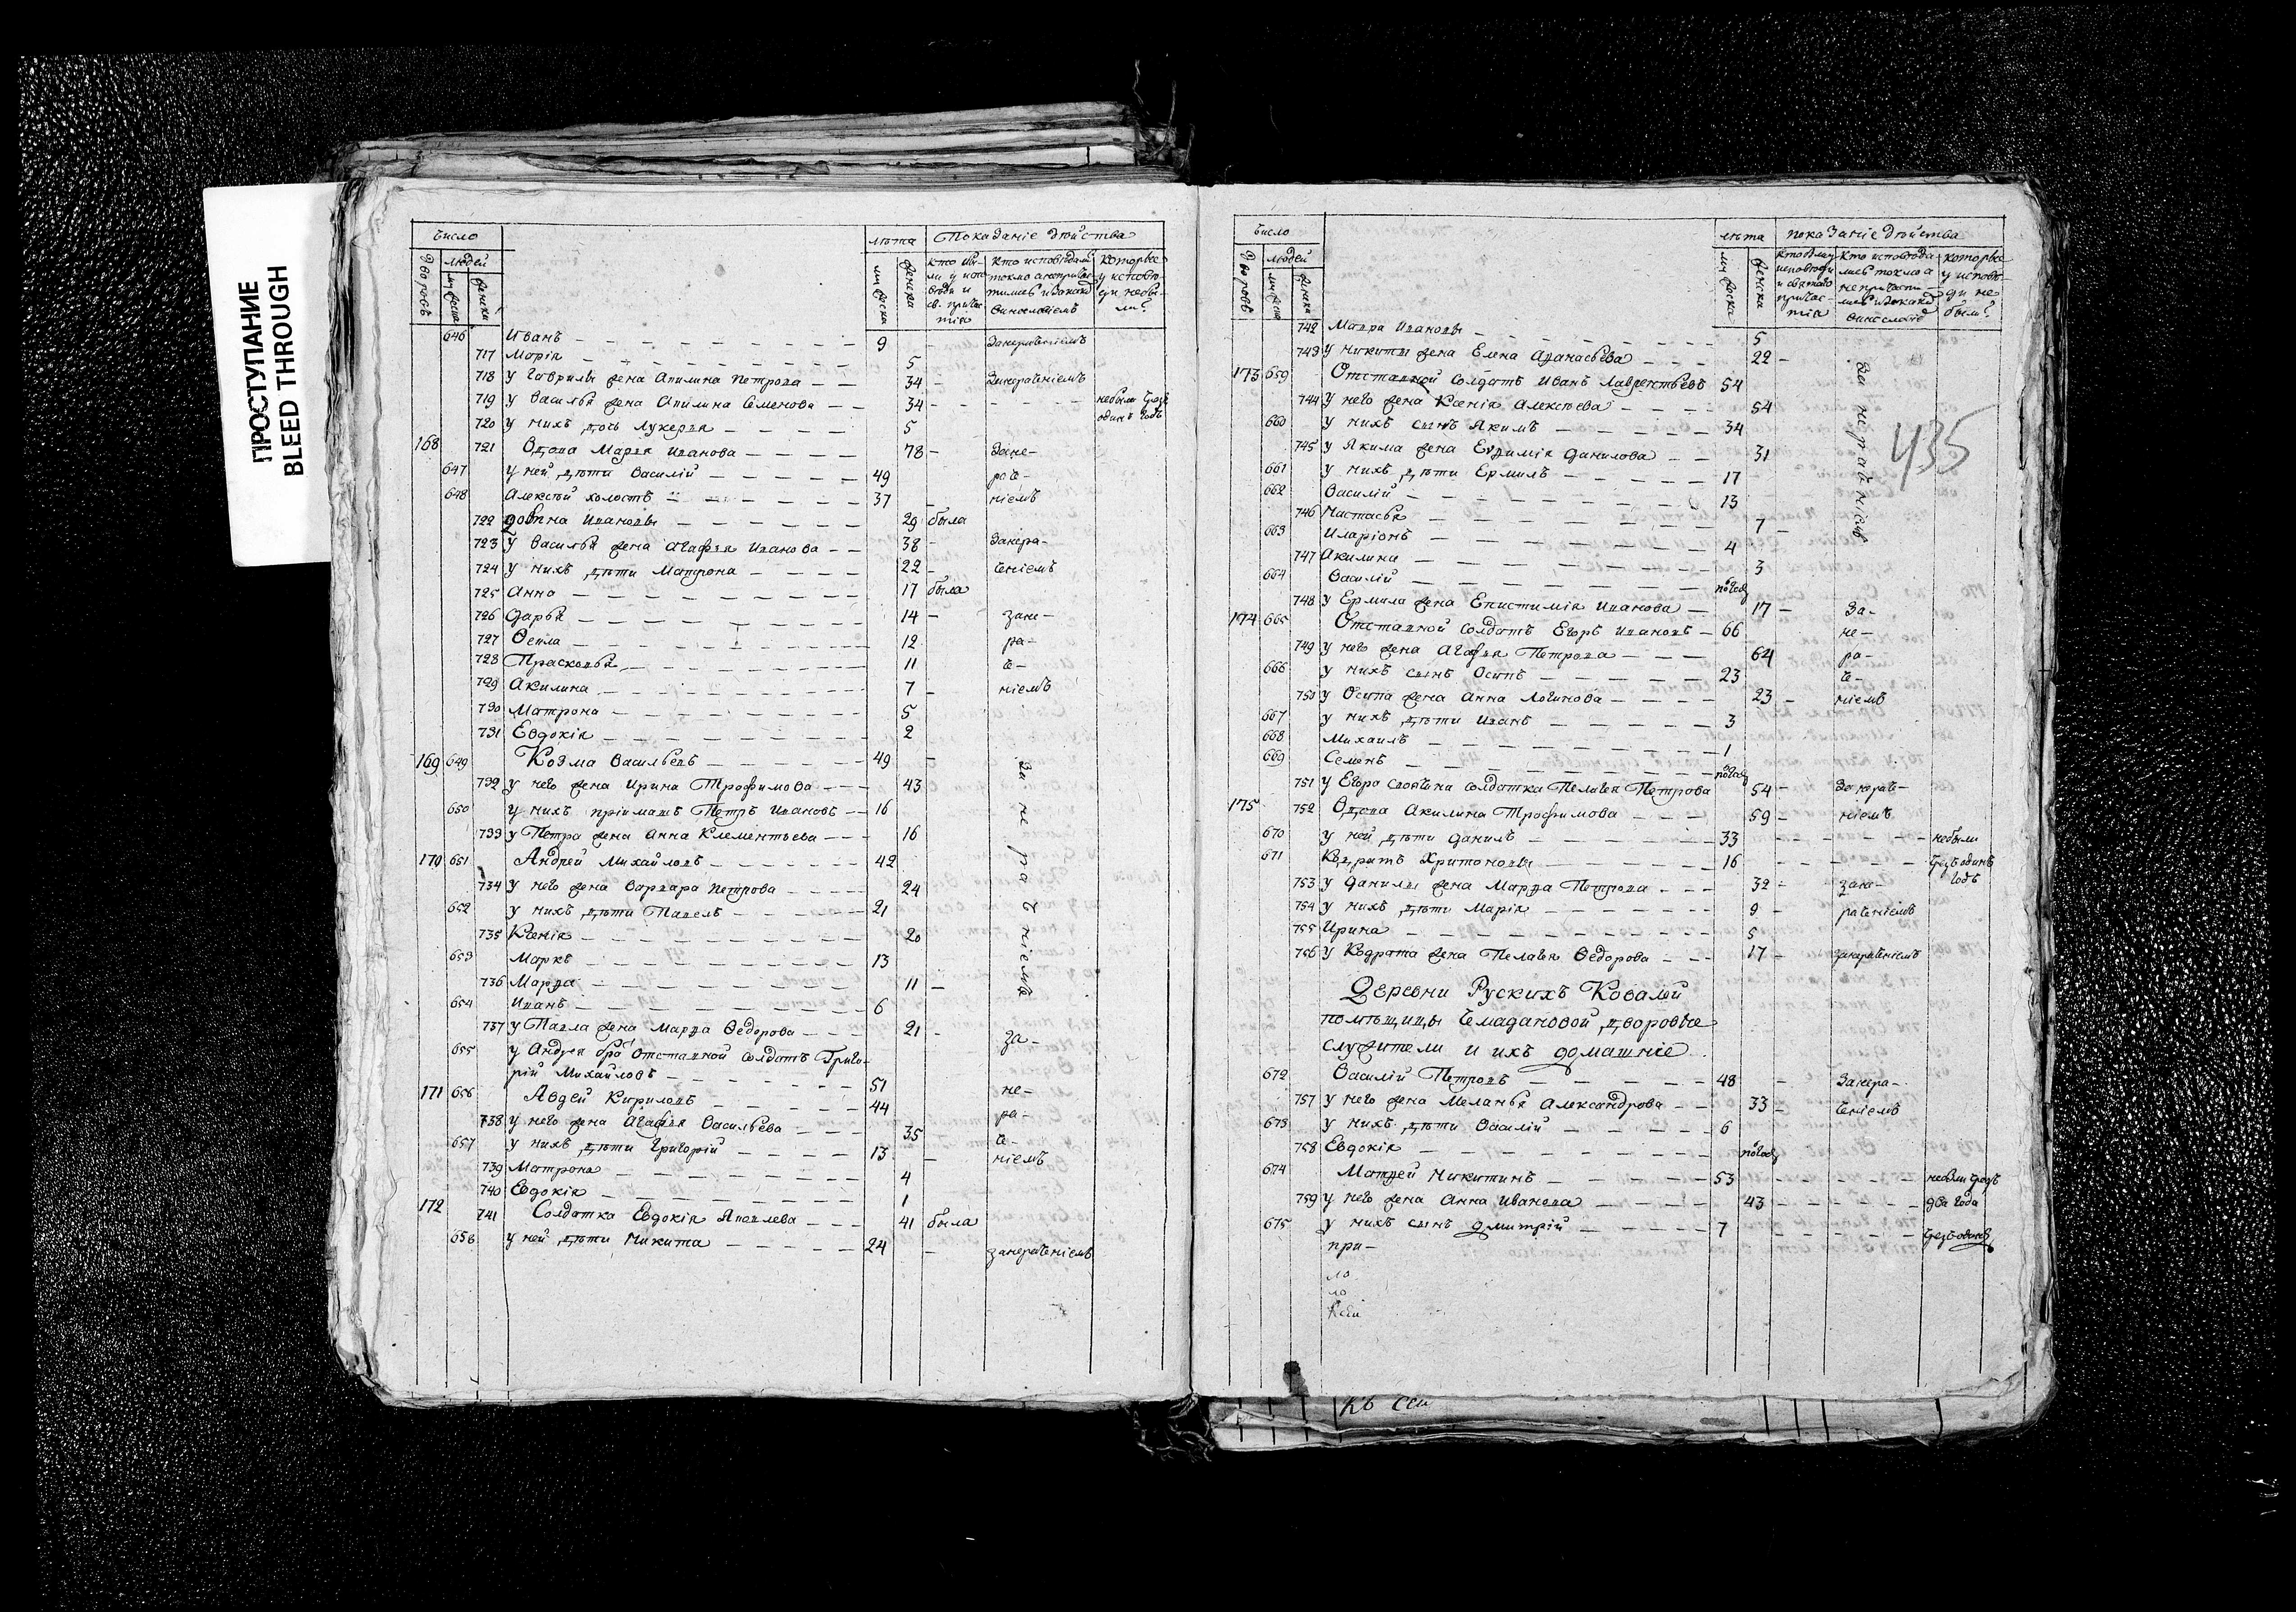 ПРОСТУПАНИЕ
BLEED THROUGH
Число лѣта Показаніе дѣйства
дворовъ людей мужеска женска
646 Иванъ 9 занерачѣніемъ
717 Марія 5
718 у Гаврилы жена Акилина Петрова 34 - Занерачѣніемъ
719 у Василья жена Акилина Семенова 34 - небыли чрезъ
720 у нихъ дочь Лукерья 5 одинъ годъ
168 721 Вдова Марья Иванова 78 - Зане-
647 у ней дѣти Василій 49 рачѣ-
648 Алексѣй холостъ 37 - ніемъ
722 довина Ивановы 29 была
723 у Василья жена Агафья Иванова 38 - Занера-
724 у нихъ дѣти Матрона 22 - чѣніемъ
725 Анна 17 была
726 Дарья 14 - зане-
727 Фекла 12 ра-
728 Прасковья 11 чѣ-
729 Акилина 7 - ніемъ
730 Матрона 5
731 Евдокія 2
169 649 Козма Васильевъ 49 - За не ра чѣ ніемъ
732 у него жена Ирина Трофимова 43
650 у нихъ пріимашъ Петръ Ивановъ 16
733 у Петра жена Анна Клементьева 16
170 651 Андрей Михайловъ 42
734 у него жена Варвара Петрова 24
652 у нихъ дѣти Павелъ 21
735 Ксенія 20
653 Маркъ 13
736 Марфа 11 -
654 Иванъ 6
737 у Павла жена Марфа Федорова 21 - за-
655 у Андрея бра Отставной солдатъ Григо-
рій Михайловъ 51 не-
171 656 Авдей Кириловъ 44 ра-
738 у него жена Агафья Васильева 35 чѣ-
657 у нихъ дѣти Григорій 13 - ніемъ
739 Матрона 4
740 Евдокія 1
172 741 Солдатка Евдокія Яковлева 41 была
658 у ней дѣти Никита 24 - занерачѣніемъ
Число лѣта показаніе дѣйства
дворовъ людей мужеска женска
742 Мавра Ивановы 5
743 у Никиты жена Елена Афанасьева 22 -
173 659 Отставной солдатъ Иванъ Лаврентьевъ 54 За нерачѣніемъ
744 у него жена Ксенія Алексѣева 54
435
660 у нихъ сынъ Якимъ 34
745 у Якима жена Евфимія Данилова 31
661 у нихъ дѣти Ермилъ 17
662 Василій 13
746 Настасья 7 -
663 Иларіонъ 4
747 Акилина 3
664 Василій полгод
748 у Ермила жена Епистимія Иванова 17 - За-
174 665 Отставной солдатъ Егоръ Ивановъ 66 не-
749 у него жена Агафья Петрова 64 ра-
666 у нихъ сынъ Осипъ 23 чѣ-
750 у Осипа жена Анна Логинова 23 - ніемъ
667 у нихъ дѣти Иванъ 3
668 Михаилъ 1
669 Семенъ полгод
751 у Егора своячина солдатка Пелагея Петрова 54 - Занерачѣ-
175 752 Вдова Акилина Трофимова 59 - ніемъ
670 у ней дѣти Данилъ 33 небыли
671 Кодратъ Харитоновы 16 чрезъ одинъ
753 у Данилы жена Марфа Петрова 32 - зане- годъ
754 у нихъ дѣти Марія 9 - рачѣніемъ
755 Ирина 5
756 у Кодрата жена Пелагея Федорова 17 - занерачѣніемъ
Деревни Рускихъ Ковалей
помѣщицы Чемадановой дворовые
служители и ихъ домашніе
672 Василій Петровъ 48 - Занера-
757 у него жена Меланья Александрова 33 - чѣніемъ
673 у нихъ дѣти Василій 6
758 Евдокія полгод
674 Матфей Никитинъ 53 небыли чрезъ
759 у него жена Анна Иванова 43 два года
675 у нихъ сынъ Дмитрій 7 чрезъ одинъ
при-
ло
ло
Къ сей